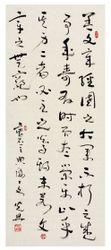 蓋文章經國之大業不朽之盛
事年壽有時而盡榮樂止乎
其身二者必至之常期未若文
章之無窮